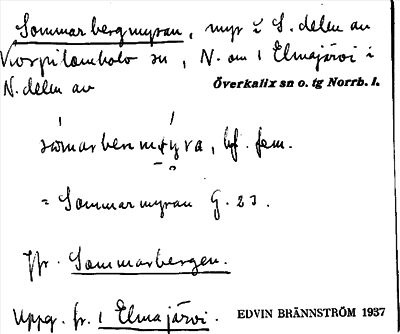 Sommarbergmyran, myr i S. delen av
Korpilombolo sn, N. om 1 Elmajärvi i
N. delen av Överkalix sn o. tg Norrb. l.
bf. fem.
= Sommarmyran G. 23.
Jfr. Sommarbergen.
Uppg. fr. 1 Elmajärvi. EDVIN BRÄNNSTRÖM 1937